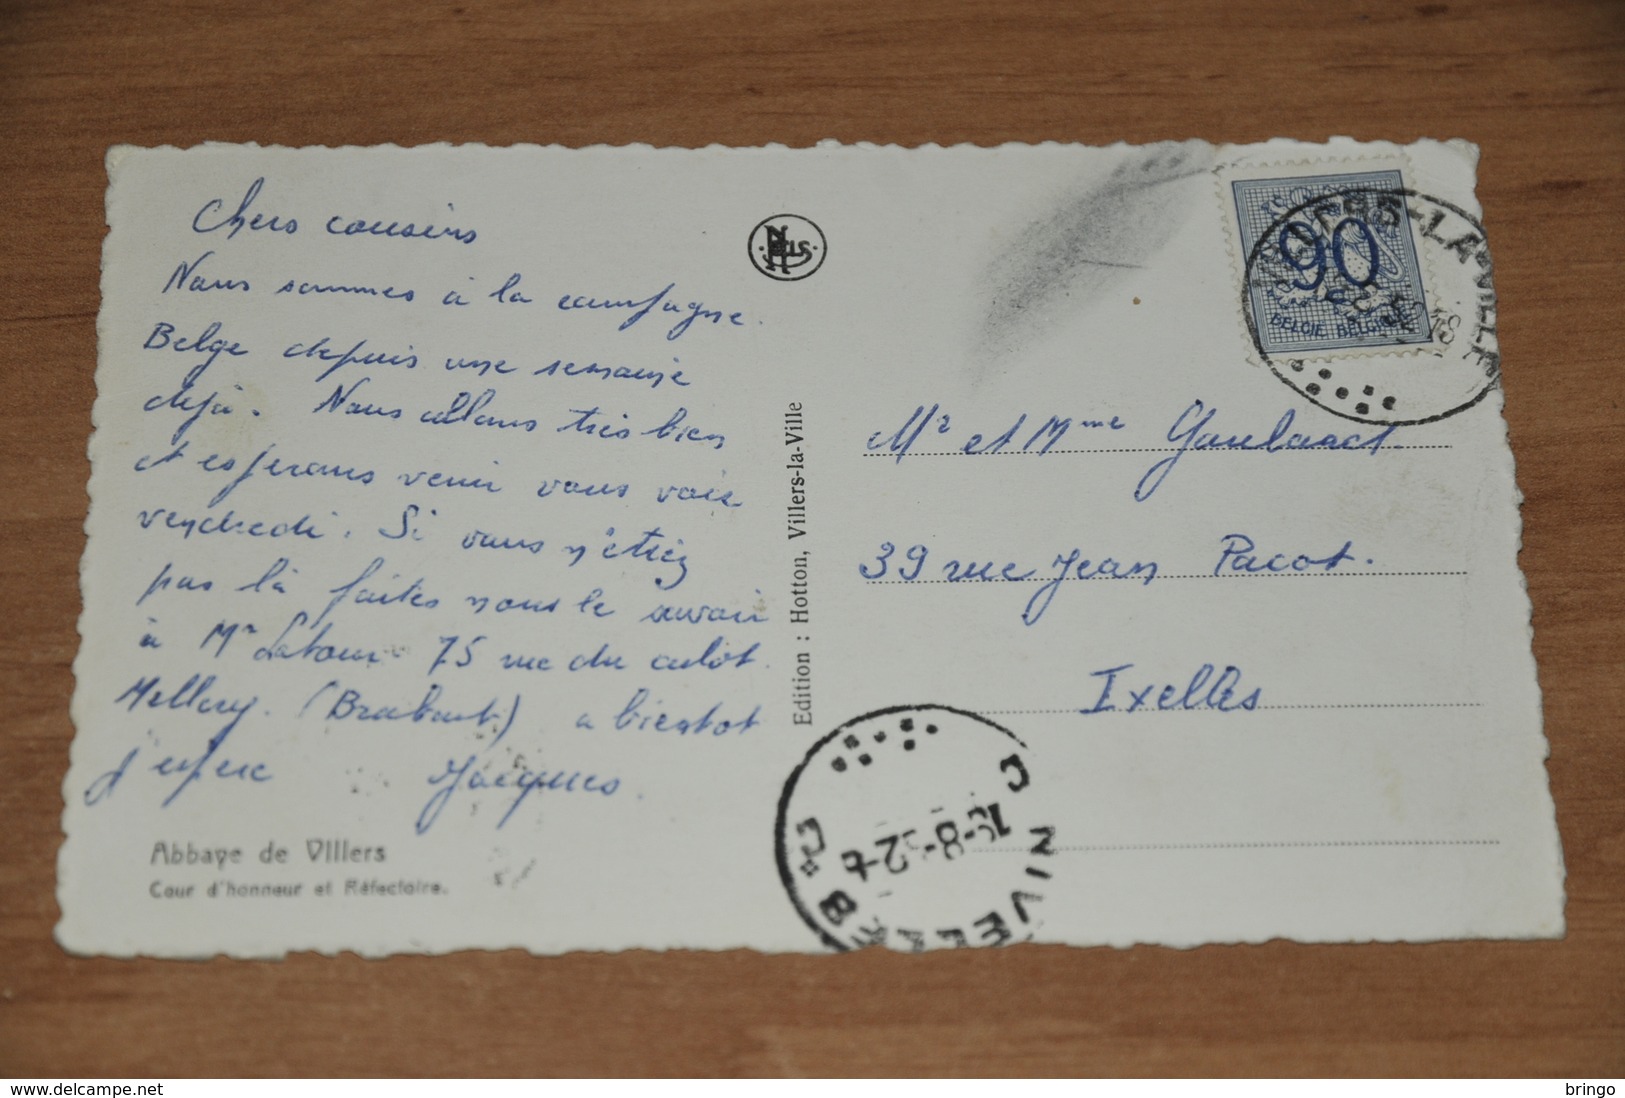 Chers cousins
Nous sommes à la campagne
Belge depuis une semaine
déjà. Nous allons très bien
et esperons venir vous voir
vendredi. Si vous n'étiez
pas là faites nous le savoir
à Mr Latour 75 rue du culot
Mellery. (Brabant) a bientot
j'espere Jacques
Abbaye de Villers
Cour d'honneur et Réfectoire.
NELS
Edition : Hotton, Villers-la-Ville
90
BELGIE BELGIQUE
VILLERS-LA-VILLE
Mr et Mme
39 rue Jean Pacot.
Ixelles
NIVELLES
delcampe.net
bringo